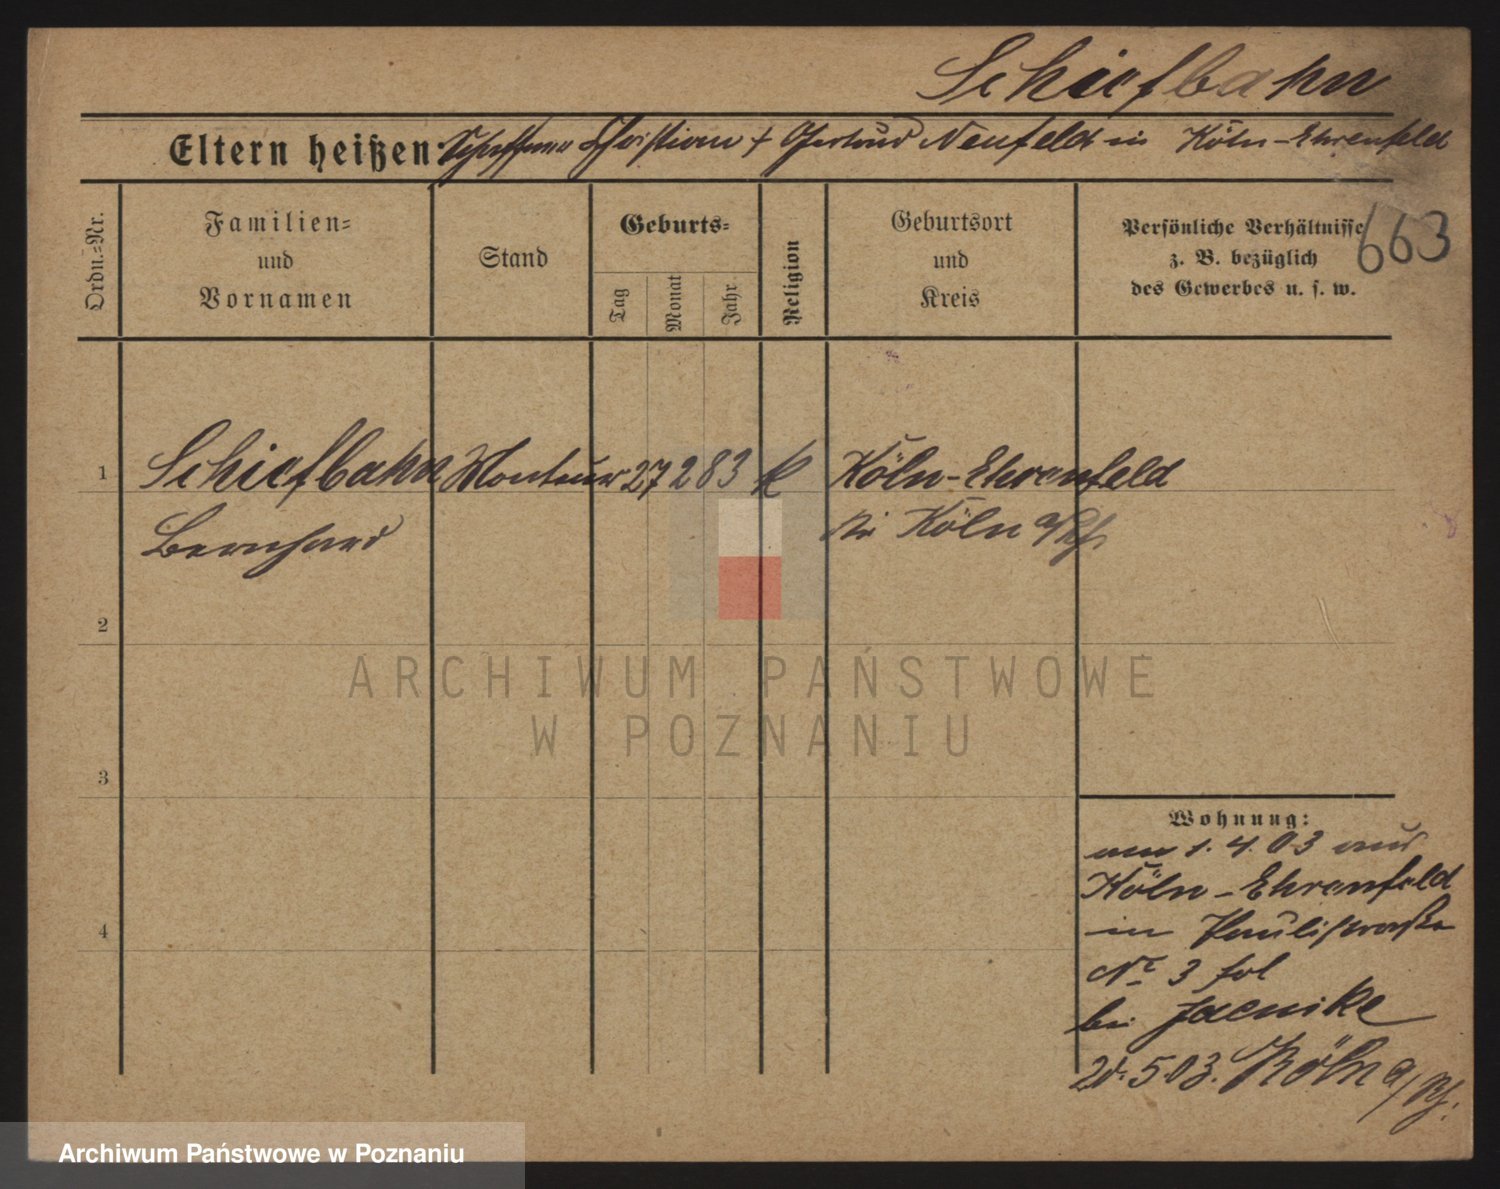 Schiefbahn
Eltern heißen: Schaffner Christian + Gertrud Neufeld in Köln-Ehrenfeld
Ordn.-Nr.
Familien-
und
Vornamen
Stand
Geburts-
Tag
Monat
Jahr
Religion
Geburtsort
und
Kreis
Persönliche Verhältnisse
z. B. bezüglich
des Gewerbes u. s. w.
663
1 Schiefbahn Monteur 27 2 83 k Köln-Ehrenfeld
Bernhard Köln a/Rh.
2
3
4
Wohnung:
am 1.4.03 aus
Köln-Ehrenfeld
in Paulistraße
No 3
bei Jaenike
5.03. Köln a/Rh.
ARCHIWUM PAŃSTWOWE
W POZNANIU
Archiwum Państwowe w Poznaniu